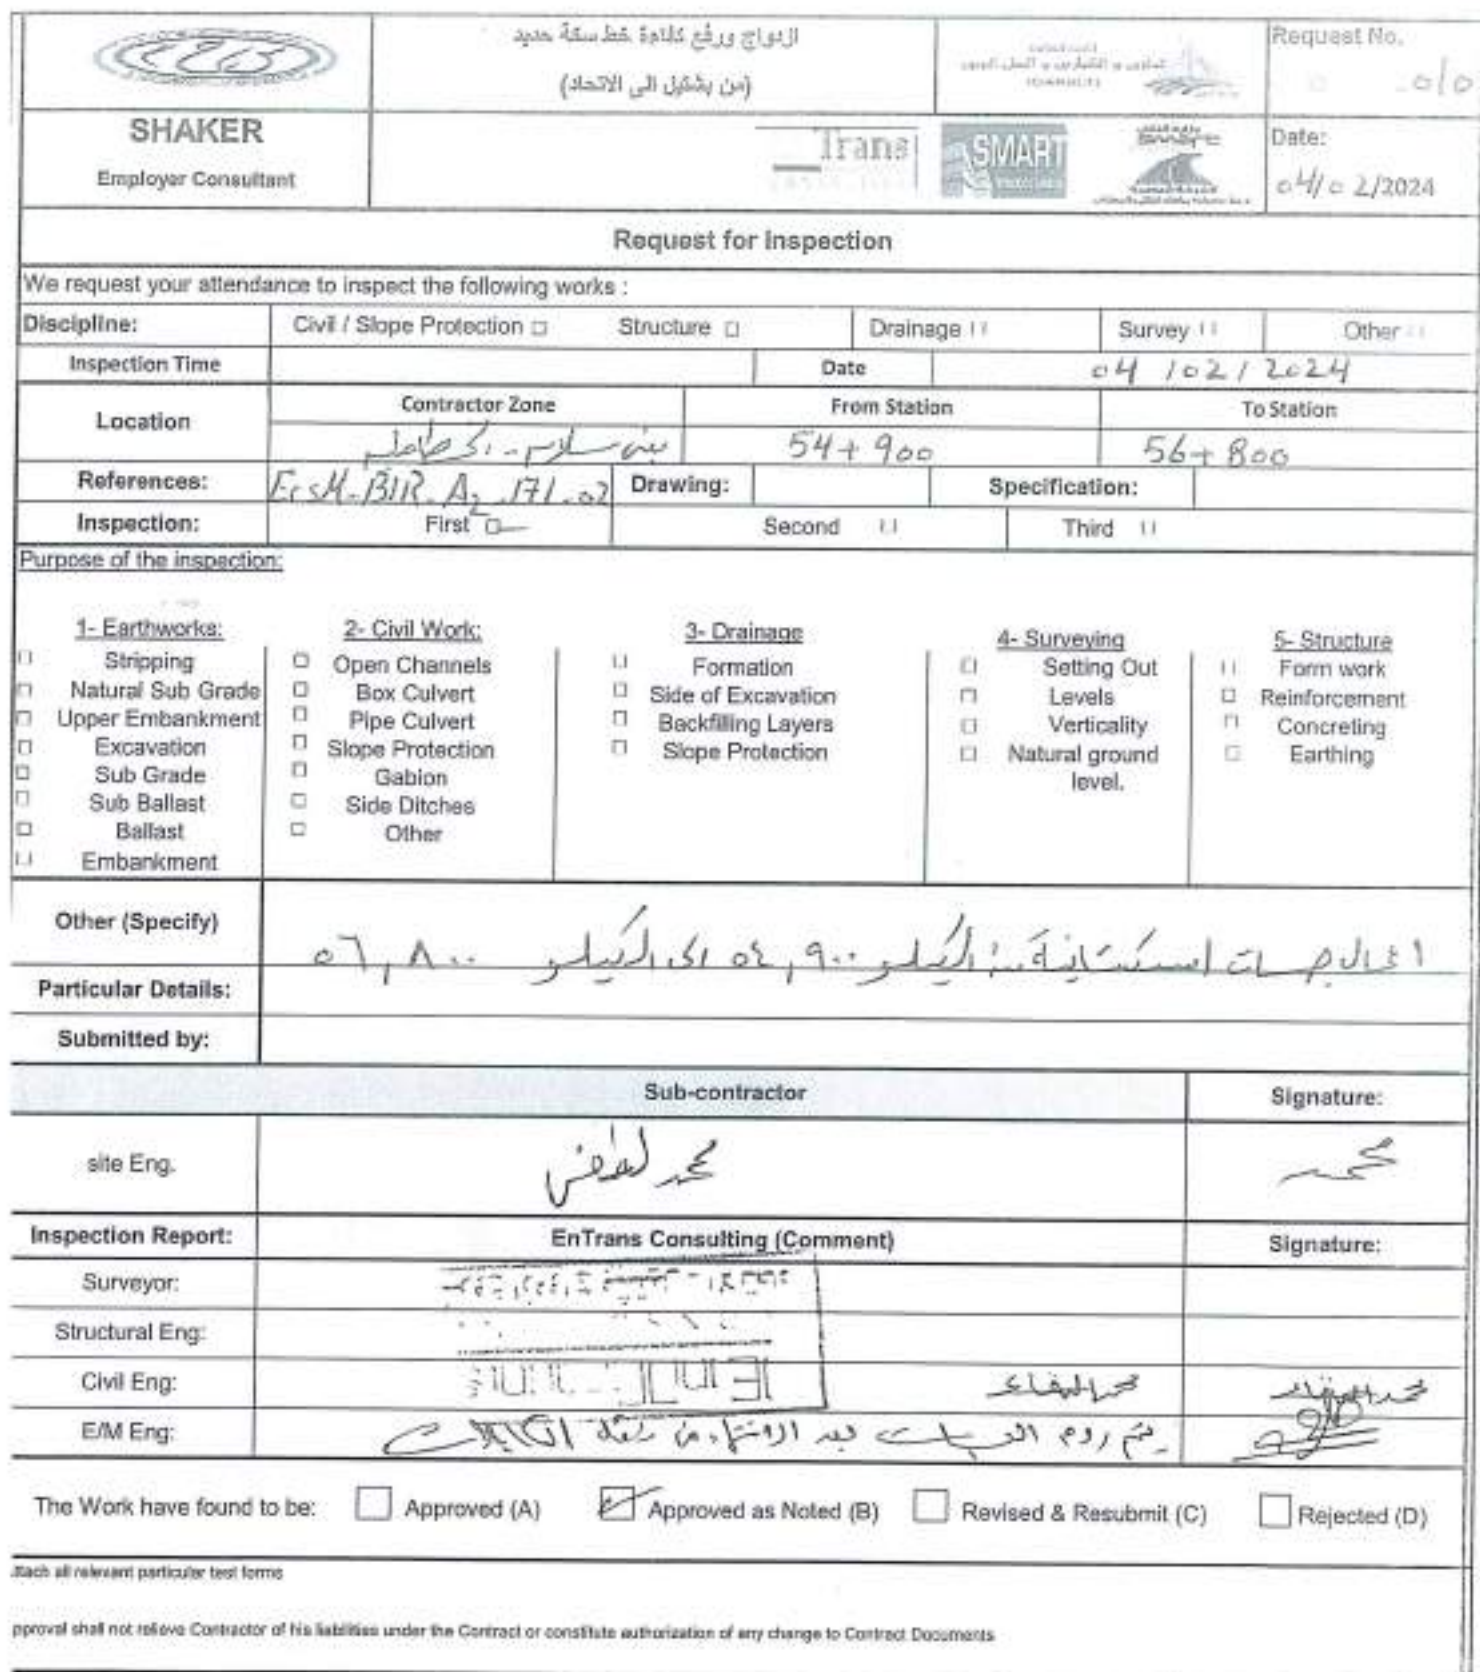 ازدواج ورفع كفاءة خط سكة حديد
(من بشتيل الى الاتحاد)
Request No.
010
SHAKER
Employer Consultant
Trans
SMART
Date:
04/02/2024
Request for Inspection
We request your attendance to inspect the following works :
Discipline: Civil / Slope Protection □ Structure □ Drainage □ Survey □ Other □
Inspection Time Date 04/02/2024
Location Contractor Zone From Station To Station
بنى سلام - 54+900 56+800
References: EcsM-BIR-A2-171-02 Drawing: Specification:
Inspection: First □ Second □ Third □
Purpose of the inspection:
1- Earthworks:
□ Stripping
□ Natural Sub Grade
□ Upper Embankment
□ Excavation
□ Sub Grade
□ Sub Ballast
□ Ballast
□ Embankment
2- Civil Work:
□ Open Channels
□ Box Culvert
□ Pipe Culvert
□ Slope Protection
□ Gabion
□ Side Ditches
□ Other
3- Drainage
□ Formation
□ Side of Excavation
□ Backfilling Layers
□ Slope Protection
4- Surveying
□ Setting Out
□ Levels
□ Verticality
□ Natural ground level.
5- Structure
□ Form work
□ Reinforcement
□ Concreting
□ Earthing
Other (Specify)
اعمال جسات استكشافية من الكيلو ٥٤,٩٠٠ الى الكيلو ٥٦,٨٠٠
Particular Details:
Submitted by:
Sub-contractor Signature:
site Eng. محمد لطفى محمد
Inspection Report: EnTrans Consulting (Comment) Signature:
Surveyor:
Structural Eng:
Civil Eng: محمد
E/M Eng: يتم ردم الجسات بعد الانتهاء من
The Work have found to be: □ Approved (A) ☑ Approved as Noted (B) □ Revised & Resubmit (C) □ Rejected (D)
ttach all relevant particular test forms
pproval shall not relieve Contractor of his liabilities under the Contract or constitute authorization of any change to Contract Documents